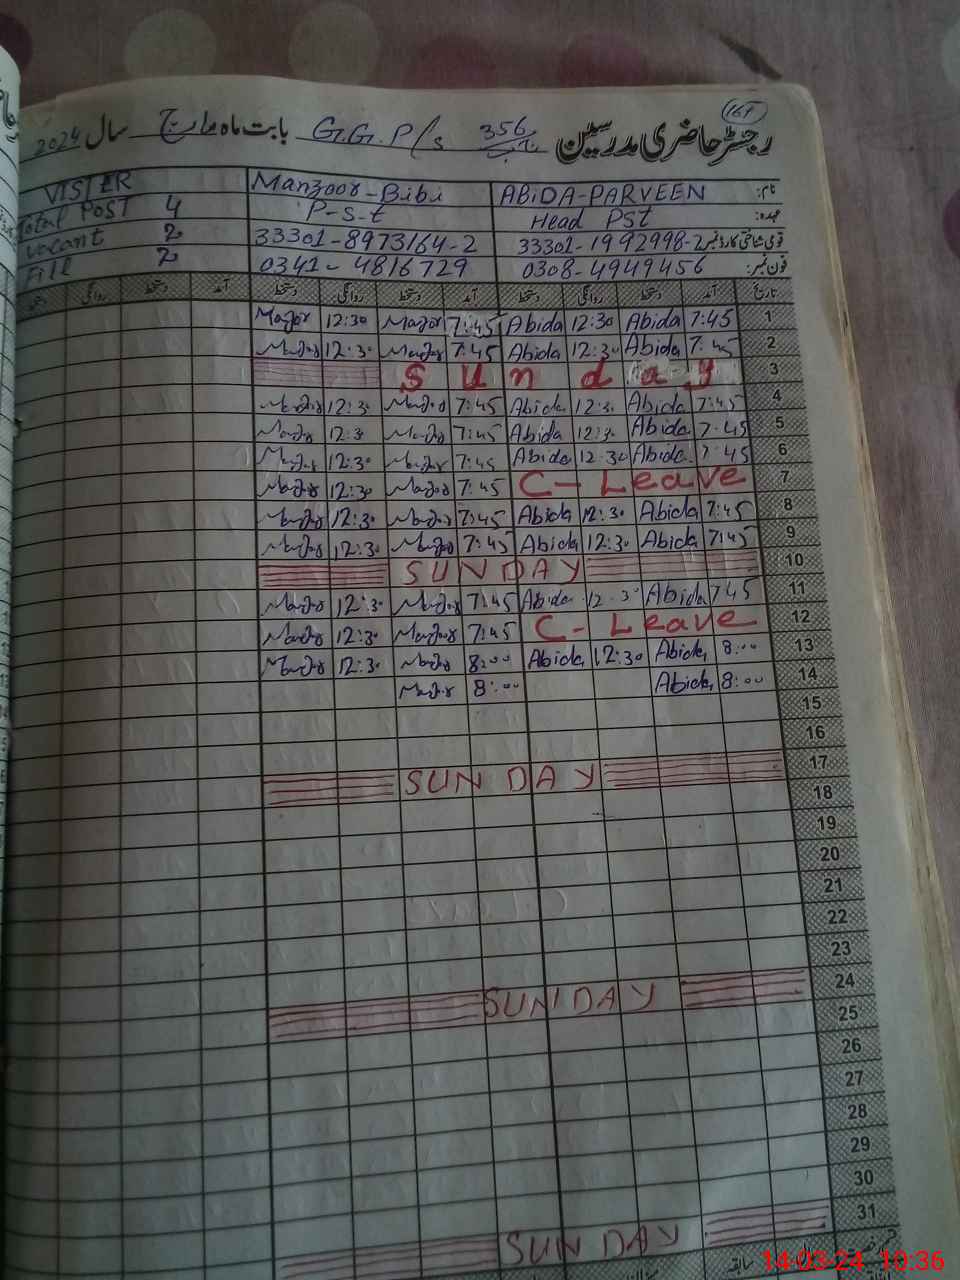 167
رجسٹر حاضری مدرسین 356 G.G.P/s بابت ماہ مارچ سال 2024
VISTER Manzoor-Bibi ABIDA-PARVEEN نام:
Total POST 4 P-S-t Head PSt عہدہ:
Vacant 2 33301-8973164-2 33301-1992998-2 قومی شناختی کارڈ نمبر
Fill 2 0341-4816729 0308-4949456 فون نمبر:
تاریخ آمد دستخط روانگی دستخط آمد دستخط روانگی دستخط آمد دستخط روانگی دستخط
Major 12:30 Major 7:45 Abida 12:30 Abida 7:45 1
Major 12:30 Major 7:45 Abida 12:30 Abida 7:45 2
Sunday 3
Major 12:30 Major 7:45 Abida 12:30 Abida 7:45 4
Major 12:30 Major 7:45 Abida 12:30 Abida 7:45 5
Major 12:30 Major 7:45 Abida 12:30 Abida 7:45 6
Major 12:30 Major 7:45 C-Leave 7
Major 12:30 Major 7:45 Abida 12:30 Abida 7:45 8
Major 12:30 Major 7:45 Abida 12:30 Abida 7:45 9
SUNDAY 10
Major 12:30 Major 7:45 Abida 12:30 Abida 7:45 11
Major 12:30 Major 7:45 C-Leave 12
Major 12:30 Major 8:00 Abida 12:30 Abida 8:00 13
Major 8:00 Abida 8:00 14
15
16
SUNDAY 17
18
19
20
21
22
23
SUNDAY 24
25
26
27
28
29
30
SUNDAY 31
سابقہ
14-03-24 10:36